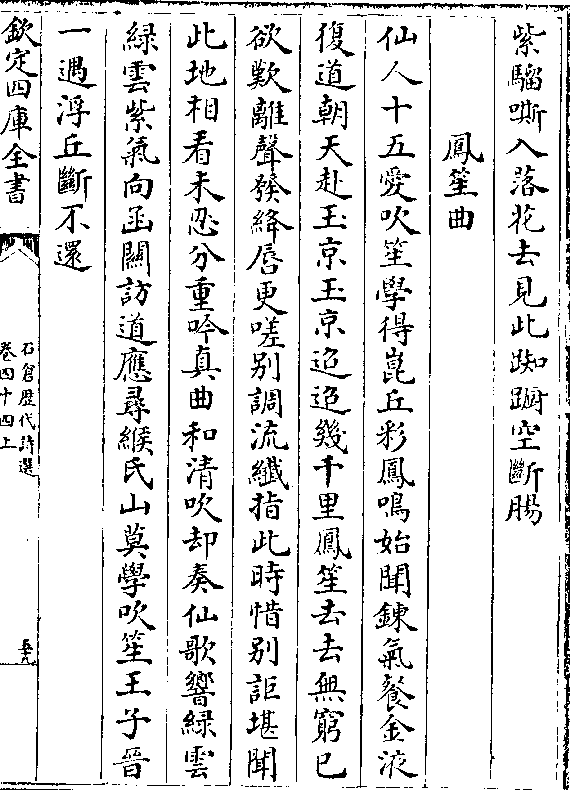 紫騮嘶入落花去見此踟蹰空斷腸
鳳笙曲
仙人十五愛吹笙學得崑丘彩鳳鳴始聞鍊氣餐金液
復道朝天赴玉京玉京迢迢幾千里鳳笙去去無窮已
欲歎離聲發絳唇更嗟别調流纎指此時惜别詎堪聞
此地相看未忍分重吟真曲和清吹却奏仙歌響緑雲
緑雲紫氣向函關訪道應尋緱氏山莫學吹笙王子晉
一遇浮丘斷不還
欽定四庫全書
石倉歴代詩選
卷四十四上